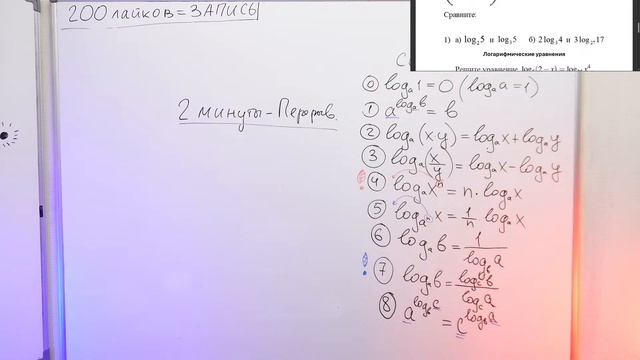 200 лайков = ЗАПИСЬ
Сравните:
1) а) log₂5 и log₃5 б) 2log₃4 и 3log₂₇17
Логарифмические уравнения
Решите уравнение
2 минуты - Перерыв.
⓪ logₐ1 = 0 (logₐa = 1)
① a^(logₐb) = b
② logₐ(x·y) = logₐx + logₐy
③ logₐ(x/y) = logₐx - logₐy
④ logₐxⁿ = n · logₐx
⑤ log_(aⁿ) x = 1/n logₐx
⑥ logₐb = 1/(log_b a)
⑦ logₐb = (log_c b)/(log_c a)
⑧ a^(log_b c) = c^(log_b a)